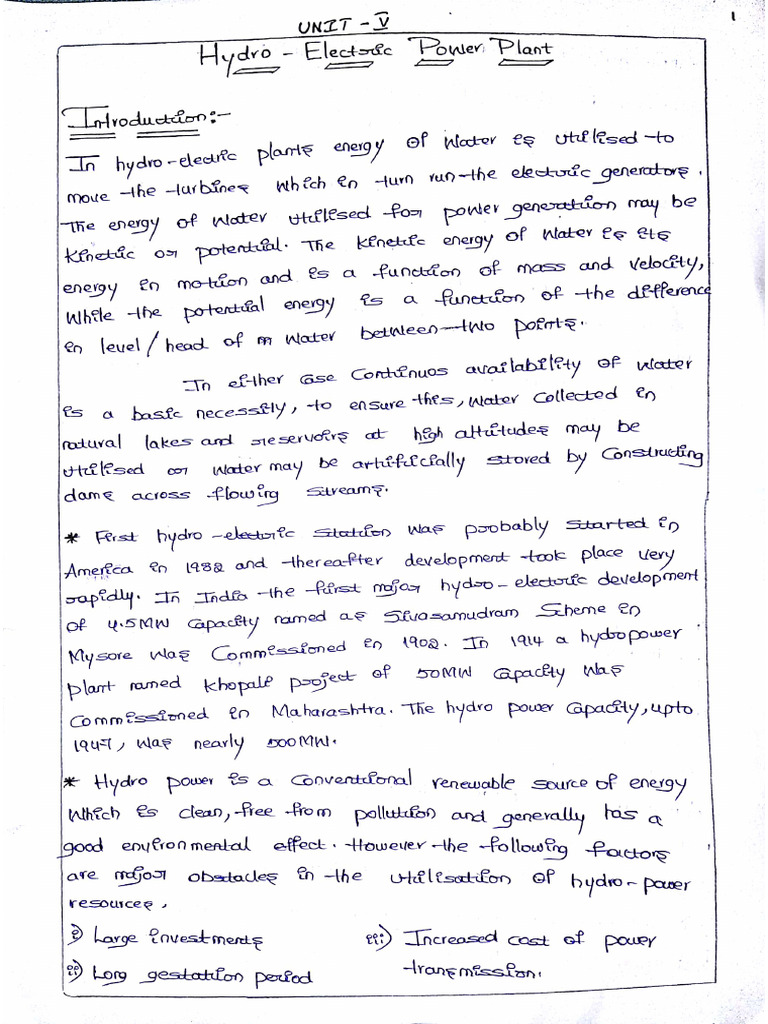 1
UNIT - V
Hydro - Electric Power Plant
Introduction:-
In hydro-electric plants energy of water is utilised to
move the turbines which in turn run the electric generators.
The energy of water utilised for power generation may be
kinetic or potential. The kinetic energy of water is its
energy in motion and is a function of mass and velocity,
while the potential energy is a function of the difference
in level/head of water between two points.
In either case continuos availability of water
is a basic necessity, to ensure this, water collected in
natural lakes and reservoirs at high altitudes may be
utilised or water may be artificially stored by constructing
dams across flowing streams.
* First hydro-electric station was probably started in
America in 1982 and thereafter development took place very
rapidly. In India the first major hydro-electric development
of 4.5MW capacity named as Sivasamudram Scheme in
Mysore was commissioned in 1902. In 1914 a hydropower
plant named Khopali project of 50MW capacity was
commissioned in Maharashtra. The hydro power capacity, upto
1947, was nearly 500MW.
* Hydro power is a conventional renewable source of energy
which is clean, free from pollution and generally has a
good environmental effect. However the following factors
are major obstacles in the utilisation of hydro-power
resources.
i) Large investments
ii) Long gestation period
iii) Increased cost of power
transmission.